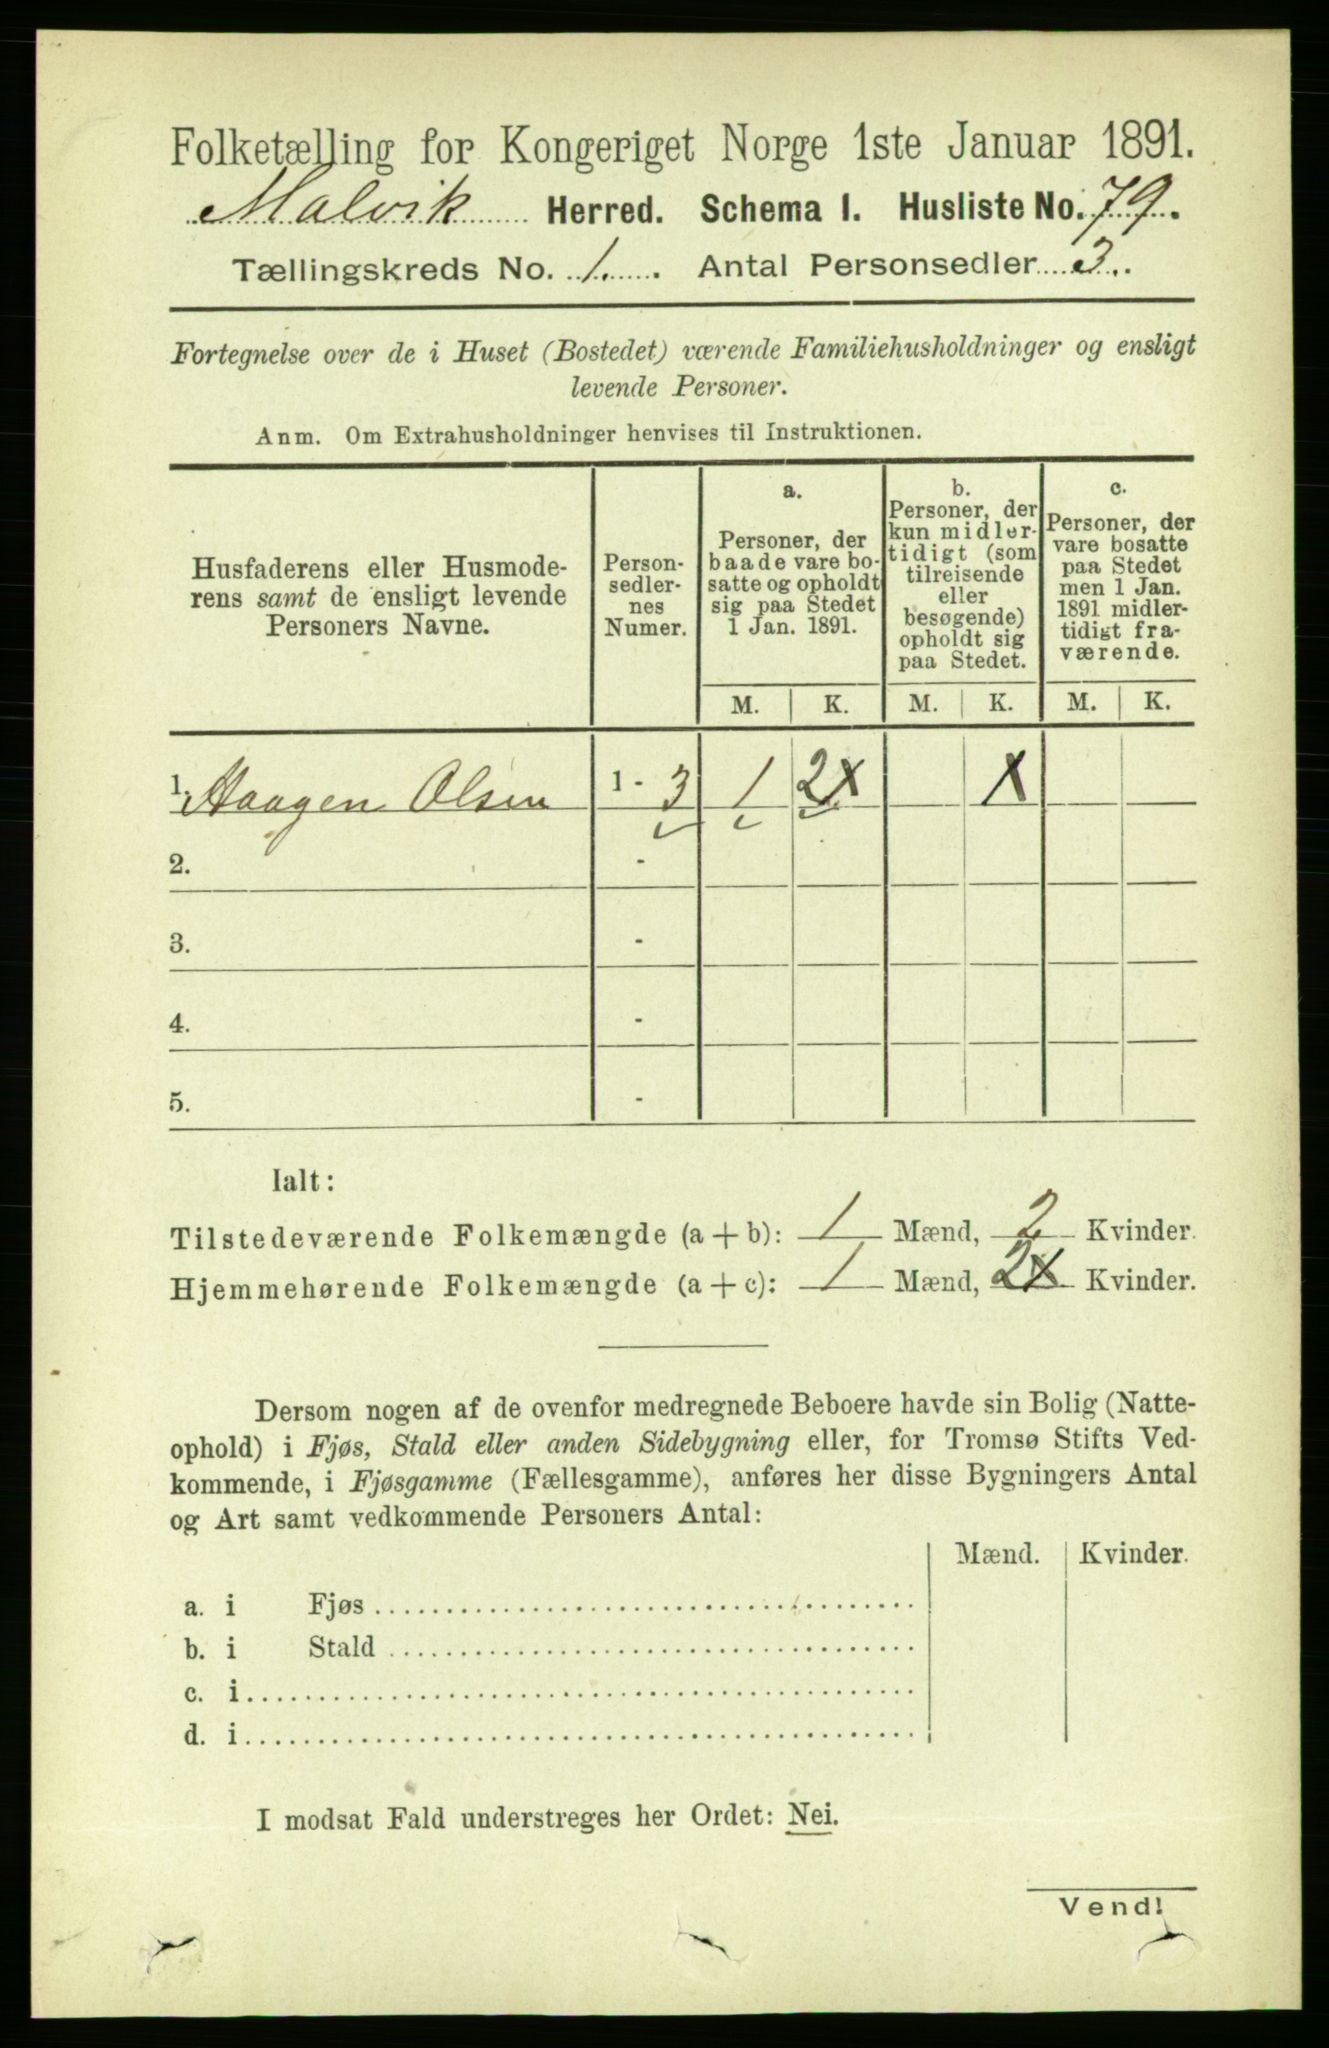 Folketælling for Kongeriget Norge 1ste Januar 1891.
Malvik Herred. Schema I. Husliste No. 79.
Tællingskreds No. 1. Antal Personsedler 3.
Fortegnelse over de i Huset (Bostedet) værende Familiehusholdninger og ensligt
levende Personer.
Anm. Om Extrahusholdninger henvises til Instruktionen.
Husfaderens eller Husmode-
rens samt de ensligt levende
Personers Navne.
Person-
sedler-
nes
Numer.
a.
Personer, der
baade vare bo-
satte og opholdt
sig paa Stedet
1 Jan. 1891.
b.
Personer, der
kun midler-
tidigt (som
tilreisende
eller
besøgende)
opholdt sig
paa Stedet.
c.
Personer, der
vare bosatte
paa Stedet
men 1 Jan.
1891 midler-
tidigt fra-
værende.
M. K. M. K. M. K.
1. Haagen Olsen 1 - 3 1 2
2. -
3. -
4. -
5. -
Ialt:
Tilstedeværende Folkemængde (a + b): 1 Mænd, 2 Kvinder.
Hjemmehørende Folkemængde (a + c): 1 Mænd, 2 Kvinder.
Dersom nogen af de ovenfor medregnede Beboere havde sin Bolig (Natte-
ophold) i Fjøs, Stald eller anden Sidebygning eller, for Tromsø Stifts Ved-
kommende, i Fjøsgamme (Fællesgamme), anføres her disse Bygningers Antal
og Art samt vedkommende Personers Antal:
Mænd. Kvinder.
a. i Fjøs
b. i Stald
c. i
d. i
I modsat Fald understreges her Ordet: Nei.
Vend!